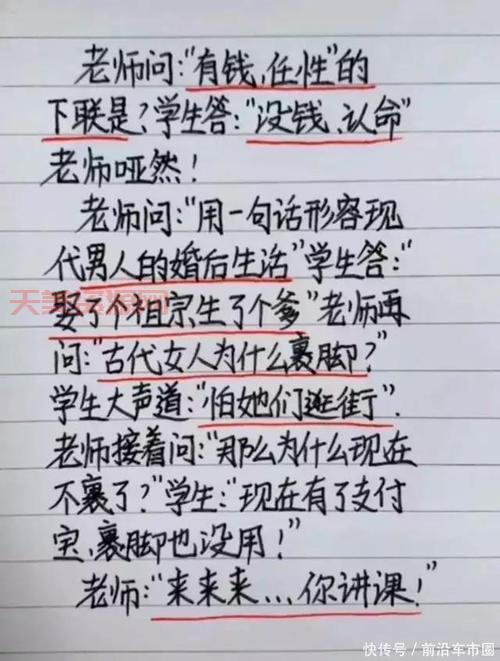 老师问:"有钱、任性"的
下联是?学生答:"没钱、认命"
老师哑然!
老师问:"用一句话形容现
代男人的婚后生活"学生答:"
娶了个祖宗生了个爹"老师再
问:"古代女人为什么裹脚?"
学生大声道:"怕她们逛街".
老师接着问:"那么为什么现在
不裹了?"学生:"现在有了支付
宝、裹脚也没用!"
老师:"来来来...你讲课!"
快传号/前沿车市圈